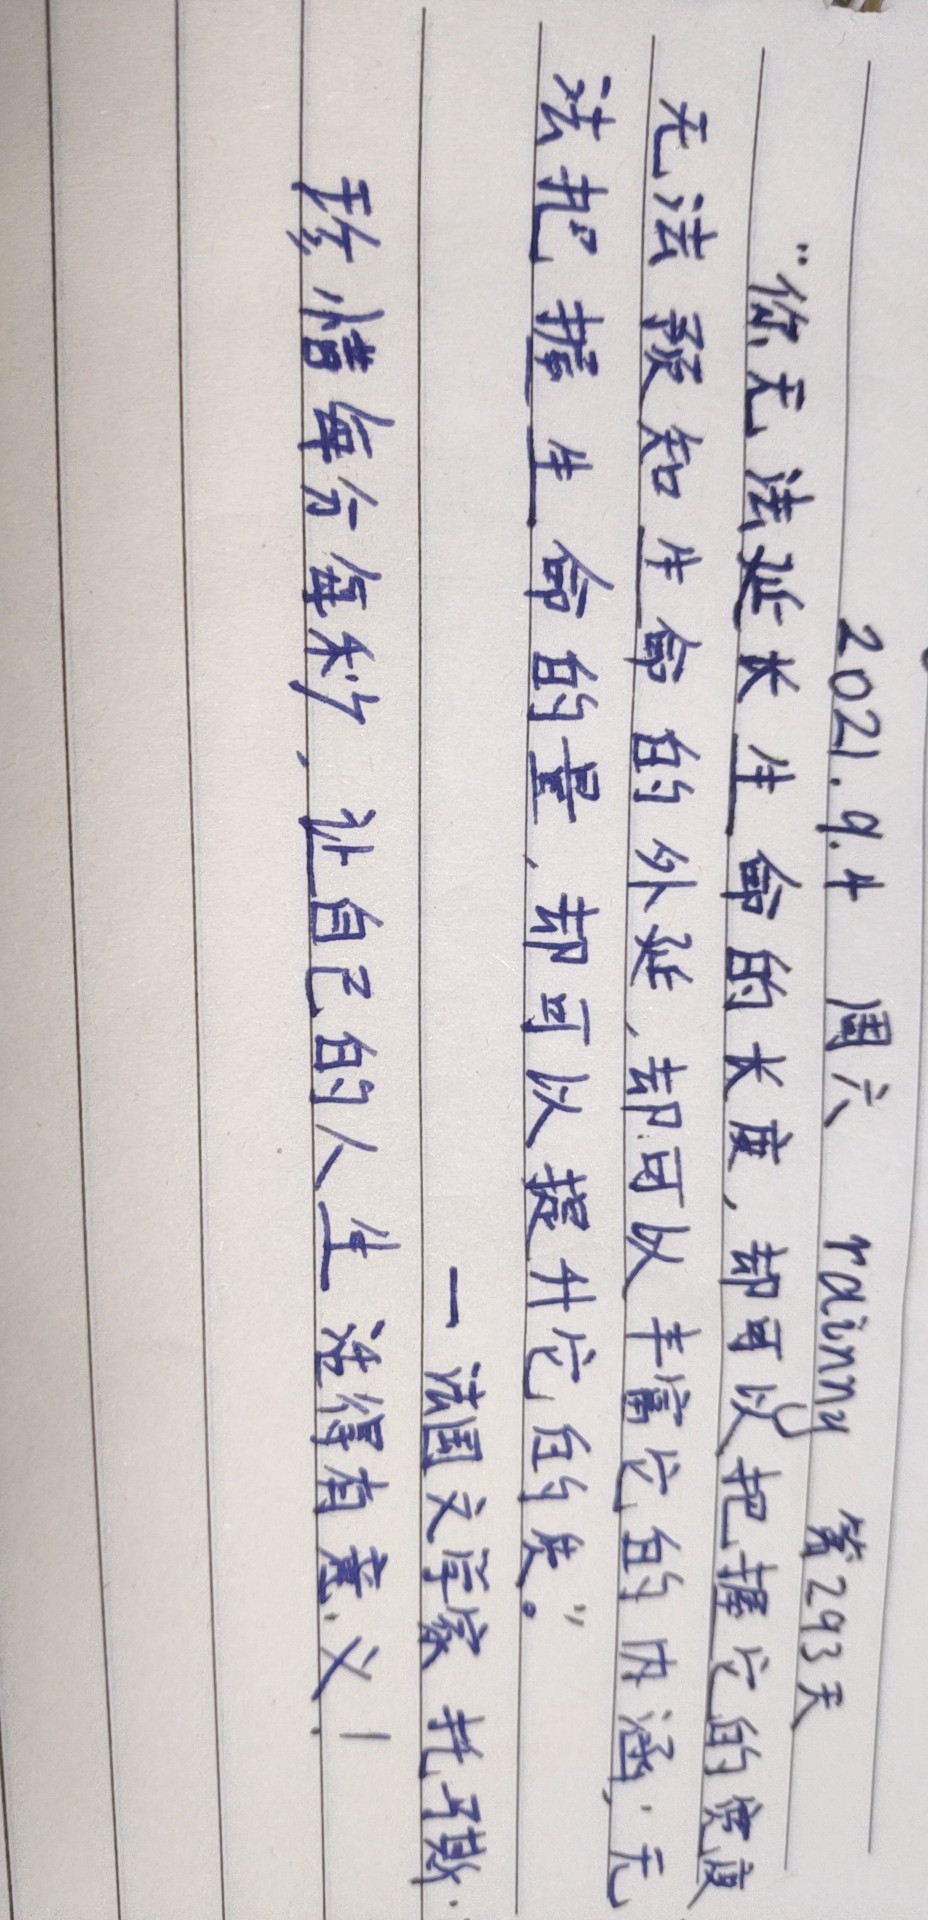 2021.9.4 周六 rainny 第293天
“你无法延长生命的长度,却可以把握它的宽度
无法预知生命的外延,却可以丰富它的内涵;无
法把握生命的量,却可以提升它的质。”
— 法国文学家 托马斯.
珍惜每分每秒,让自己的人生活得有意义!